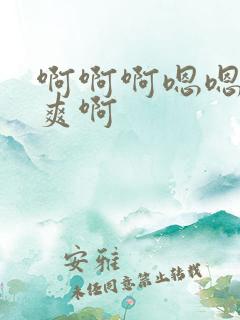 啊啊啊嗯嗯
爽啊
安雅
未经同意禁止转载